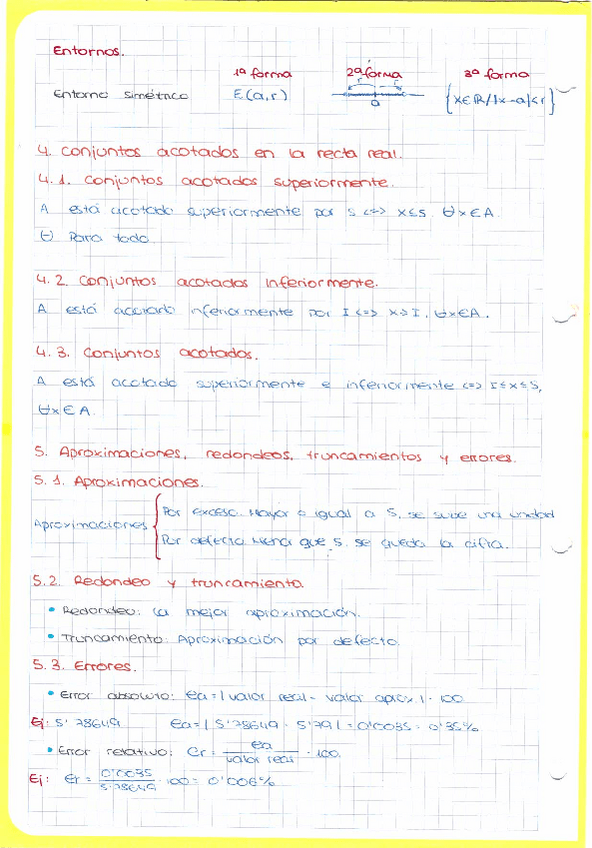 Entornos.
1ª forma 2ª forma 3ª forma
Entorno simétrico E(a,r) r r a {x∈R/|x-a|<r}
4. Conjuntos acotados en la recta real.
4.1. Conjuntos acotados superiormente.
A está acotado superiormente por S <=> x≤S. ∀x∈A.
(∀) Para todo.
4.2. Conjuntos acotados inferiormente.
A está acotado inferiormente por I <=> x≥I, ∀x∈A.
4.3. Conjuntos acotados.
A está acotado superiormente e inferiormente <=> I≤x≤S,
∀x∈A.
5. Aproximaciones, redondeos, truncamientos y errores.
5.1. Aproximaciones.
Aproximaciones { Por exceso. Mayor o igual a 5, se sube una unidad
Por defecto. Menor que 5, se queda la cifra.
5.2. Redondeo y truncamiento.
• Redondeo: La mejor aproximación.
• Truncamiento: Aproximación por defecto.
5.3. Errores.
• Error absoluto: ea = |valor real - valor aprox.| · 100
Ej: 5'78649 ea = |5'78649 - 5'79| = 0'0035 · 0'35%
• Error relativo: er = ea / valor real · 100.
Ej: er = 0'0035 / 5'78649 · 100 = 0'006%